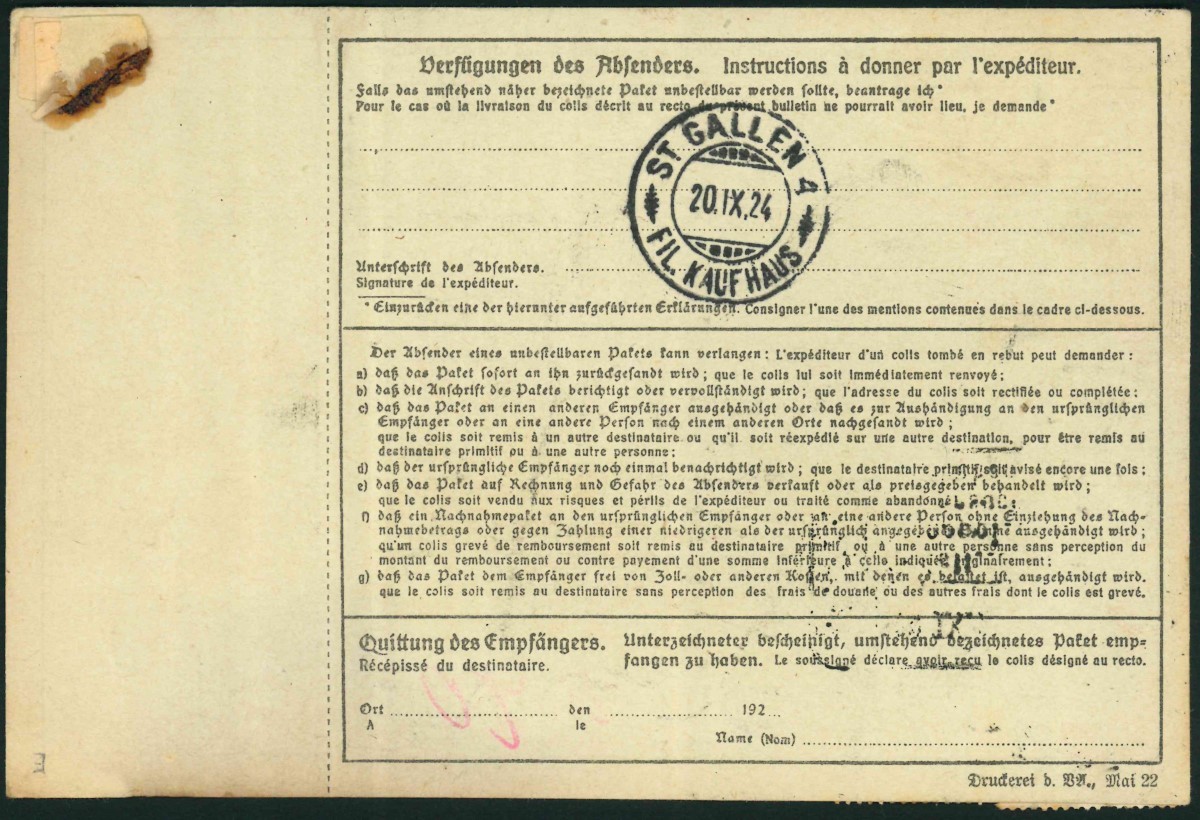 Verfügungen des Absenders. Instructions à donner par l'expéditeur.
Falls das umstehend näher bezeichnete Paket unbestellbar werden sollte, beantrage ich*
Pour le cas où la livraison du colis décrit au recto du présent bulletin ne pourrait avoir lieu, je demande*
ST GALLEN 4
20.IX.24
FIL. KAUFHAUS
Unterschrift des Absenders.
Signature de l'expéditeur.
* Einzurücken eine der hierunter aufgeführten Erklärungen. Consigner l'une des mentions contenues dans le cadre ci-dessous.
Der Absender eines unbestellbaren Pakets kann verlangen: L'expéditeur d'un colis tombé en rebut peut demander:
a) daß das Paket sofort an ihn zurückgesandt wird; que le colis lui soit immédiatement renvoyé;
b) daß die Anschrift des Pakets berichtigt oder vervollständigt wird; que l'adresse du colis soit rectifiée ou complétée;
c) daß das Paket an einen anderen Empfänger ausgehändigt oder daß es zur Aushändigung an den ursprünglichen
Empfänger oder an eine andere Person nach einem anderen Orte nachgesandt wird;
que le colis soit remis à un autre destinataire ou qu'il soit réexpédié sur une autre destination, pour être remis au
destinataire primitif ou à une autre personne;
d) daß der ursprüngliche Empfänger noch einmal benachrichtigt wird; que le destinataire primitif soit avisé encore une fois;
e) daß das Paket auf Rechnung und Gefahr des Absenders verkauft oder als preisgegeben behandelt wird;
que le colis soit vendu aux risques et périls de l'expéditeur ou traité comme abandonné;
f) daß ein Nachnahmepaket an den ursprünglichen Empfänger oder an eine andere Person ohne Einziehung des Nach-
nahmebetrags oder gegen Zahlung einer niedrigeren als der ursprünglich angegebenen Summe ausgehändigt wird;
qu'un colis grevé de remboursement soit remis au destinataire primitif, ou à une autre personne sans perception du
montant du remboursement ou contre payement d'une somme inférieure à celle indiquée originairement;
g) daß das Paket dem Empfänger frei von Zoll- oder anderen Kosten, mit denen es belastet ist, ausgehändigt wird.
que le colis soit remis au destinataire sans perception des frais de douane ou des autres frais dont le colis est grevé.
Quittung des Empfängers. Unterzeichneter bescheinigt, umstehend bezeichnetes Paket emp-
Récépissé du destinataire. fangen zu haben. Le soussigné déclare avoir reçu le colis désigné au recto.
Ort den 192
A le
Name (Nom)
Druckerei d. VA., Mai 22